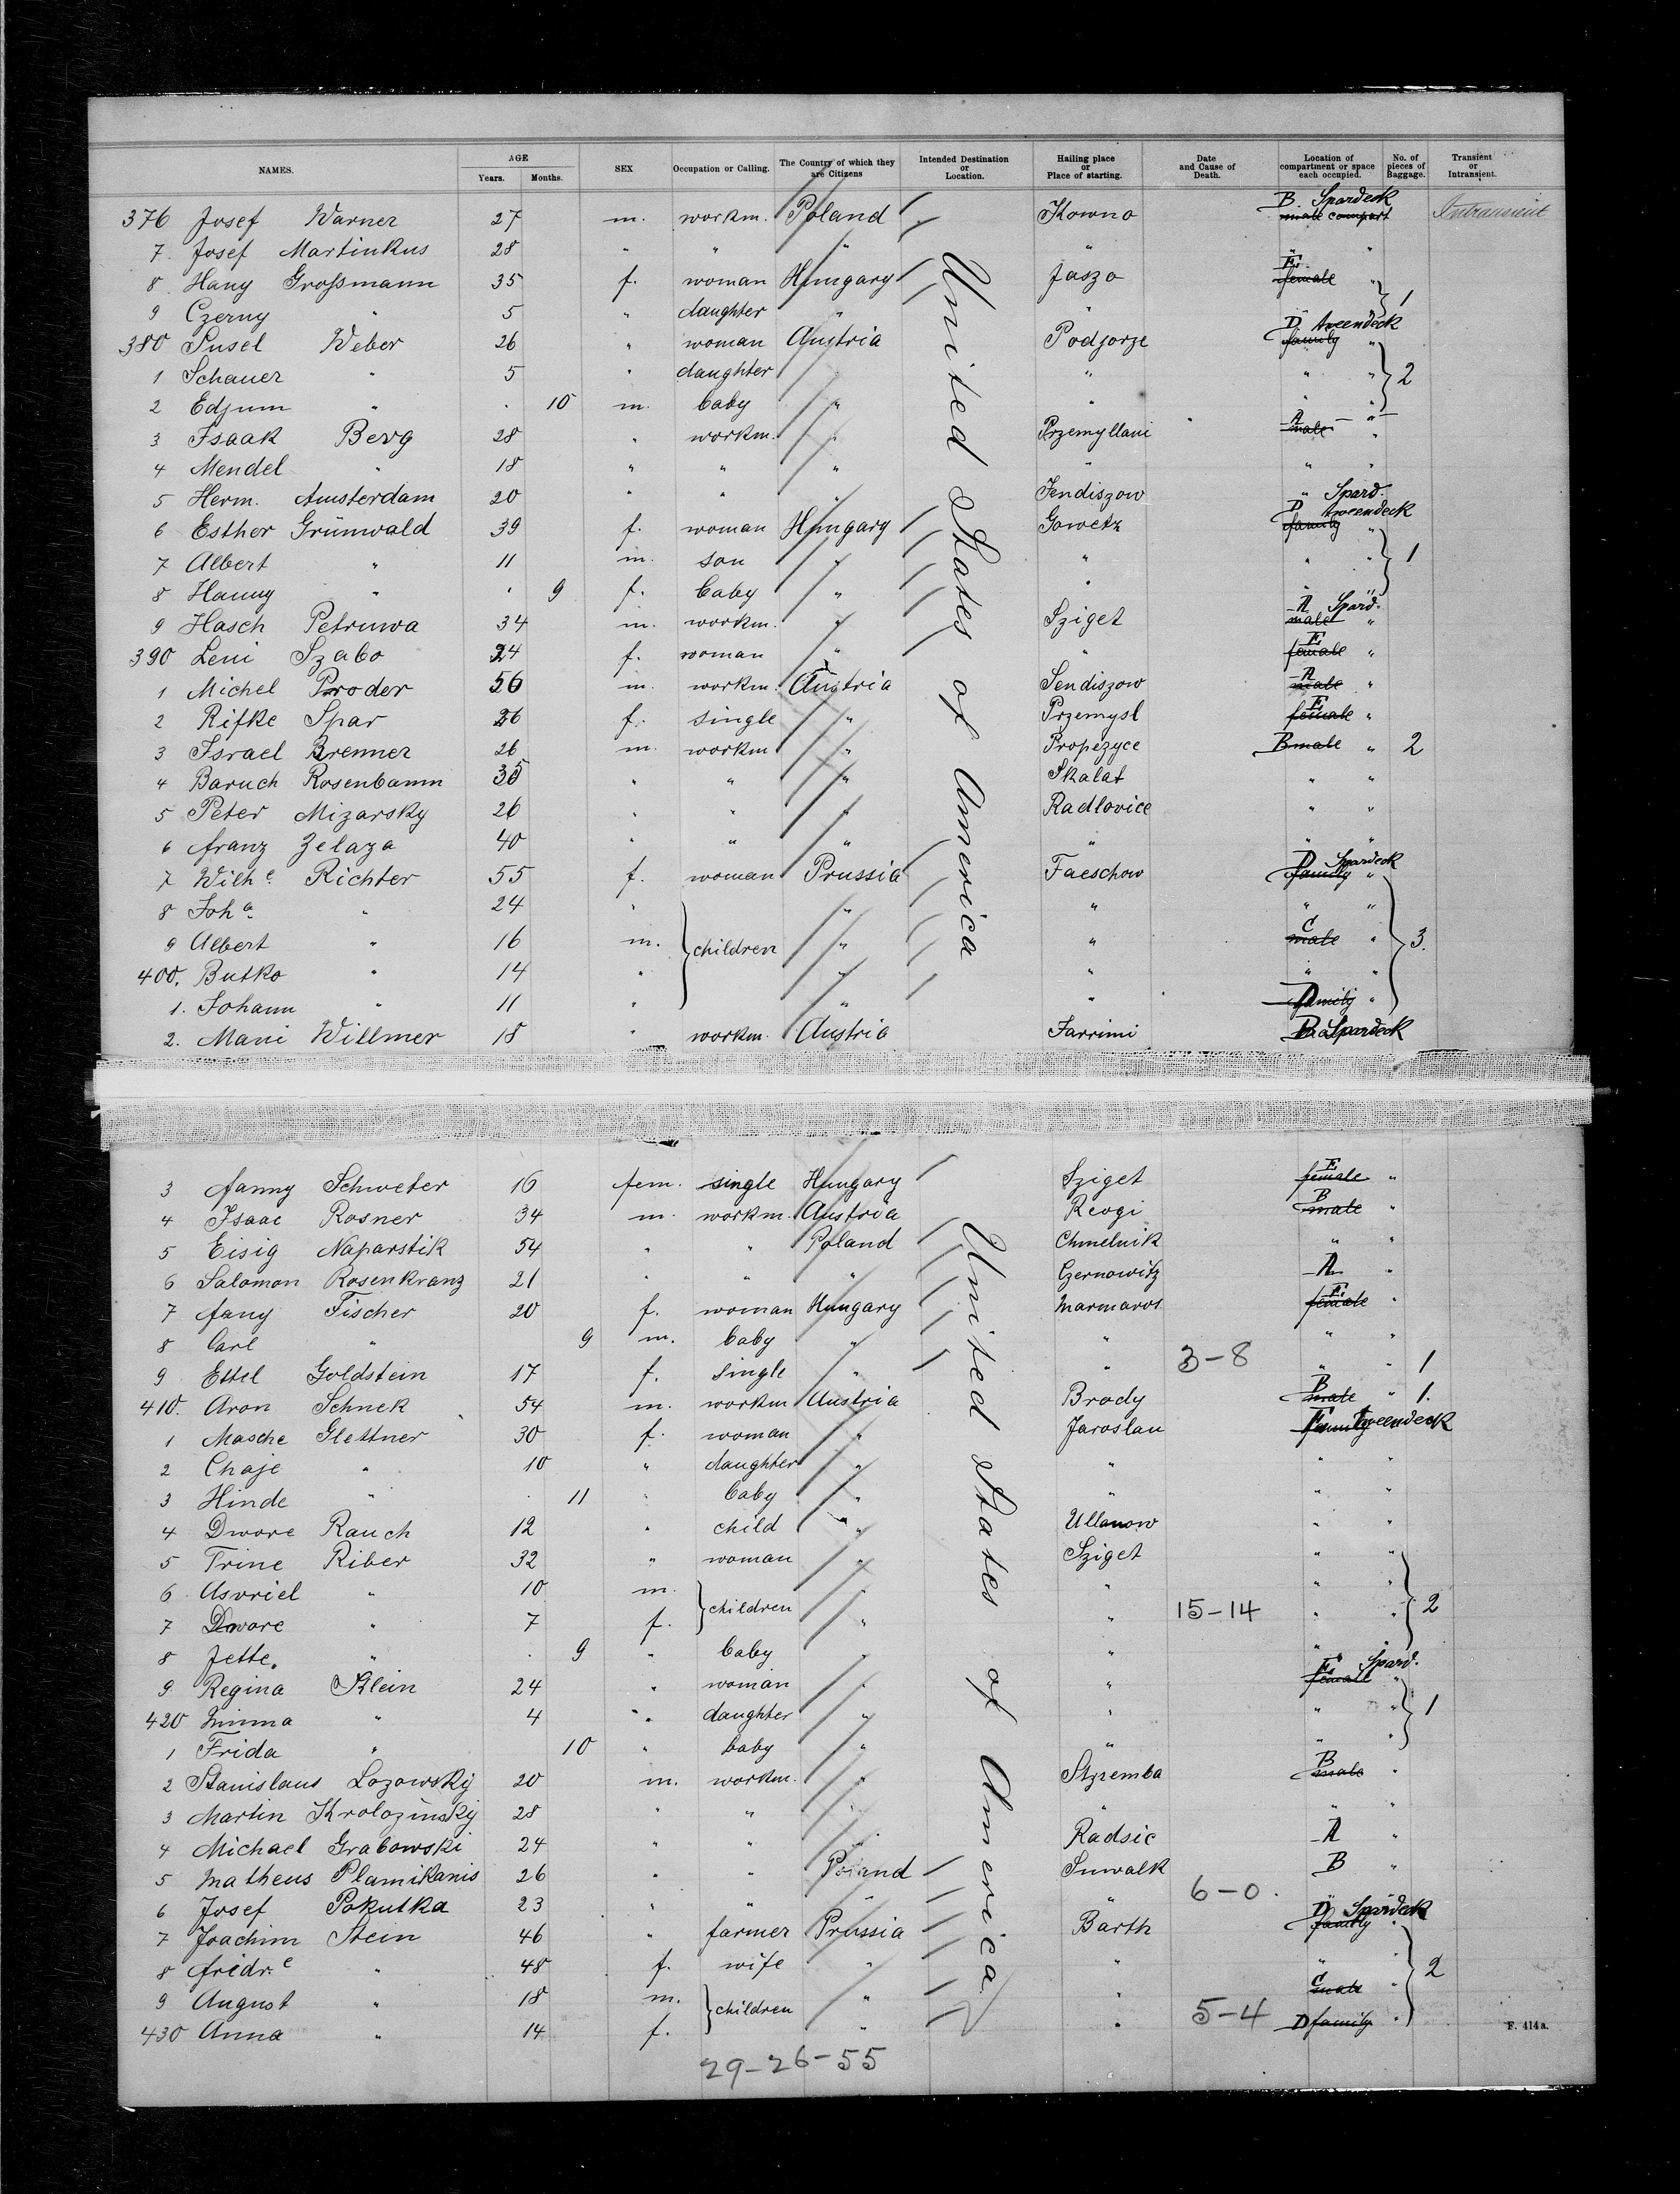 NAMES. AGE Years. Months. SEX Occupation or Calling. The Country of which they are Citizens Intended Destination or Location. Hailing place or Place of starting. Date and Cause of Death. Location of compartment or space each occupied. No. of pieces of Baggage. Transient or Intransient.
376 Josef Warner 27 m. workm. Poland Kowno B. Spardeck male compart Intransient
7 Josef Martinkus 28 " " " " " "
8 Hany Großmann 35 f. woman Hungary Jaszo E. female "
9 Czerny " 5 " daughter " " " " 1
380 Susel Weber 26 " woman Austria Podjorze D. tweendeck family "
1 Schauer " 5 " daughter " " " " 2
2 Edjum " . 10 m. baby " " " "
3 Isaak Berg 28 " workm. " Przemyllani A male "
4 Mendel " 18 " " " " " "
5 Herm. Amsterdam 20 " " " Jendiszow " Spard.
6 Esther Grünwald 39 f. woman Hungary Gowetz D tweendeck family "
7 Albert " 11 m. son " " " " 1
8 Hanny " . 9 f. baby " " " "
9 Hasch Petruwa 34 m. workm. " Sziget A Spard. male "
390 Leni Szabo 24 f. woman " " E female "
1 Michel Proder 56 m. workm. Austria Sendiszow A male "
2 Rifke Spar 26 f. single " Przemysl E female "
3 Israel Brenner 26 m. workm " Propezyce B male " 2
4 Baruch Rosenbaum 35 " " " Skalat " "
5 Peter Mizarsky 26 " " " Radlovice " "
6 franz Zelaza 40 " " " " " "
7 Wilhe. Richter 55 f. woman Prussia Faeschow D Spardeck family "
8 Joha. " 24 " " " " "
9 Albert " 16 m. children " " C male " 3.
400. Butko " 14 " " " " "
1. Johann " 11 " " " D family "
2. Mani Willmer 18 " workm. Austria Jarrimi B Spardeck
United States of America
3 fanny Schweter 16 fem. single Hungary Sziget E female "
4 Isaac Rosner 34 m. workm. Austria Revgi B male "
5 Eisig Naparstik 54 " " Poland Chmelnik " "
6 Salomon Rosenkranz 21 " " " Czernowitz A "
7 fany Fischer 20 f. woman Hungary Marmaros E. female "
8 Carl " 9 m. baby " " " "
3-8
9 Ettel Goldstein 17 f. single " " " " 1
410. Aron Schnek 54 m. workm Austria Brody B male " 1.
1 Masche Glettner 30 f. woman " Jaroslau F Tweendeck family
2 Chaje " 10 " daughter " " " "
3 Hinde " . 11 " baby " " " "
4 Dwore Rauch 12 " child " Ullanow " "
5 Trine Riber 32 " woman " Sziget " "
6 Asvriel " 10 m. children " " " "
7 Dwore " 7 f. " " 15-14 " " 2
8 Jette. " . 9 " baby " " " "
9 Regina Klein 24 " woman " " E Spard. female "
420 Minna " 4 " daughter " " " " 1
1 Frida " 10 " baby " " " "
2 Stanislaus Lozowskÿ 20 m. workm. " Styremba B male "
3 Martin Krolozinskÿ 28 " " " " " "
4 Michael Grabowski 24 " " " Radsic A "
5 Matheus Plamikanis 26 " " Poland Suwalk B "
6-0.
6 Josef Pokutka 23 " " " " " "
7 Joachim Stein 46 " farmer Prussia Barth D Spardeck family
8 fridr.e " 48 f. wife " " " " 2
9 August " 18 m. children " " C male "
430 Anna " 14 f. " " 5-4 D family "
United States of America
F. 414a.
29-26-55